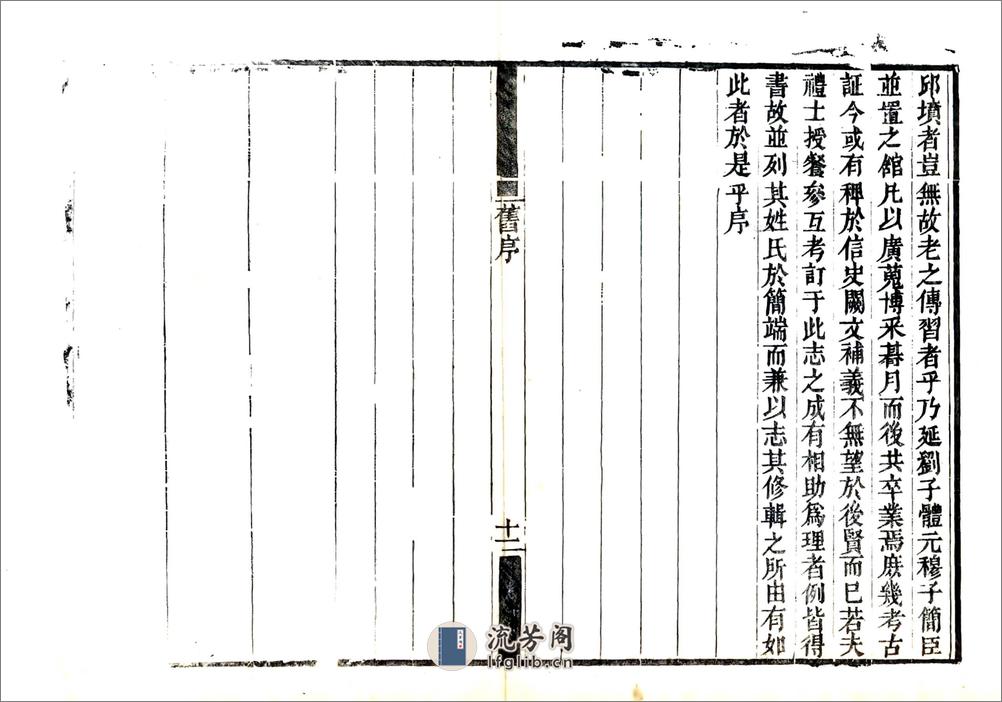 邱墳者豈無故老之傳習者乎乃延劉子體元穆子簡臣
並置之館凡以廣蒐博采朞月而後共卒業焉庶幾考古
証今或有裨於信史闕文補義不無望於後賢而已若夫
禮士授餐參互考訂于此志之成有相助爲理者例皆得
書故並列其姓氏於簡端而兼以志其修輯之所由有如
此者於是乎序
舊序
十二
流芳阁
lfglib.cn